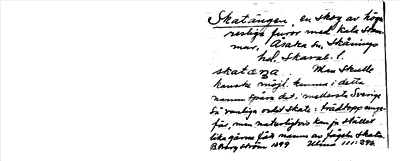 Skatängen, en skog av höga
resliga furor med kala stam-
mar, Åsaka sn, Skånings
hd, Skarab. l.
skatæŋa. Man skulle
kanske möjl. kunna i detta
namn spåra det i mellersta Sverige
så vanliga ordet skate: trädtopp unge-
fär, men naturligtvis kan ju stället
lika gärna fått namn av fågeln skata.
B. Bergström 1899 Ulma 111:294.